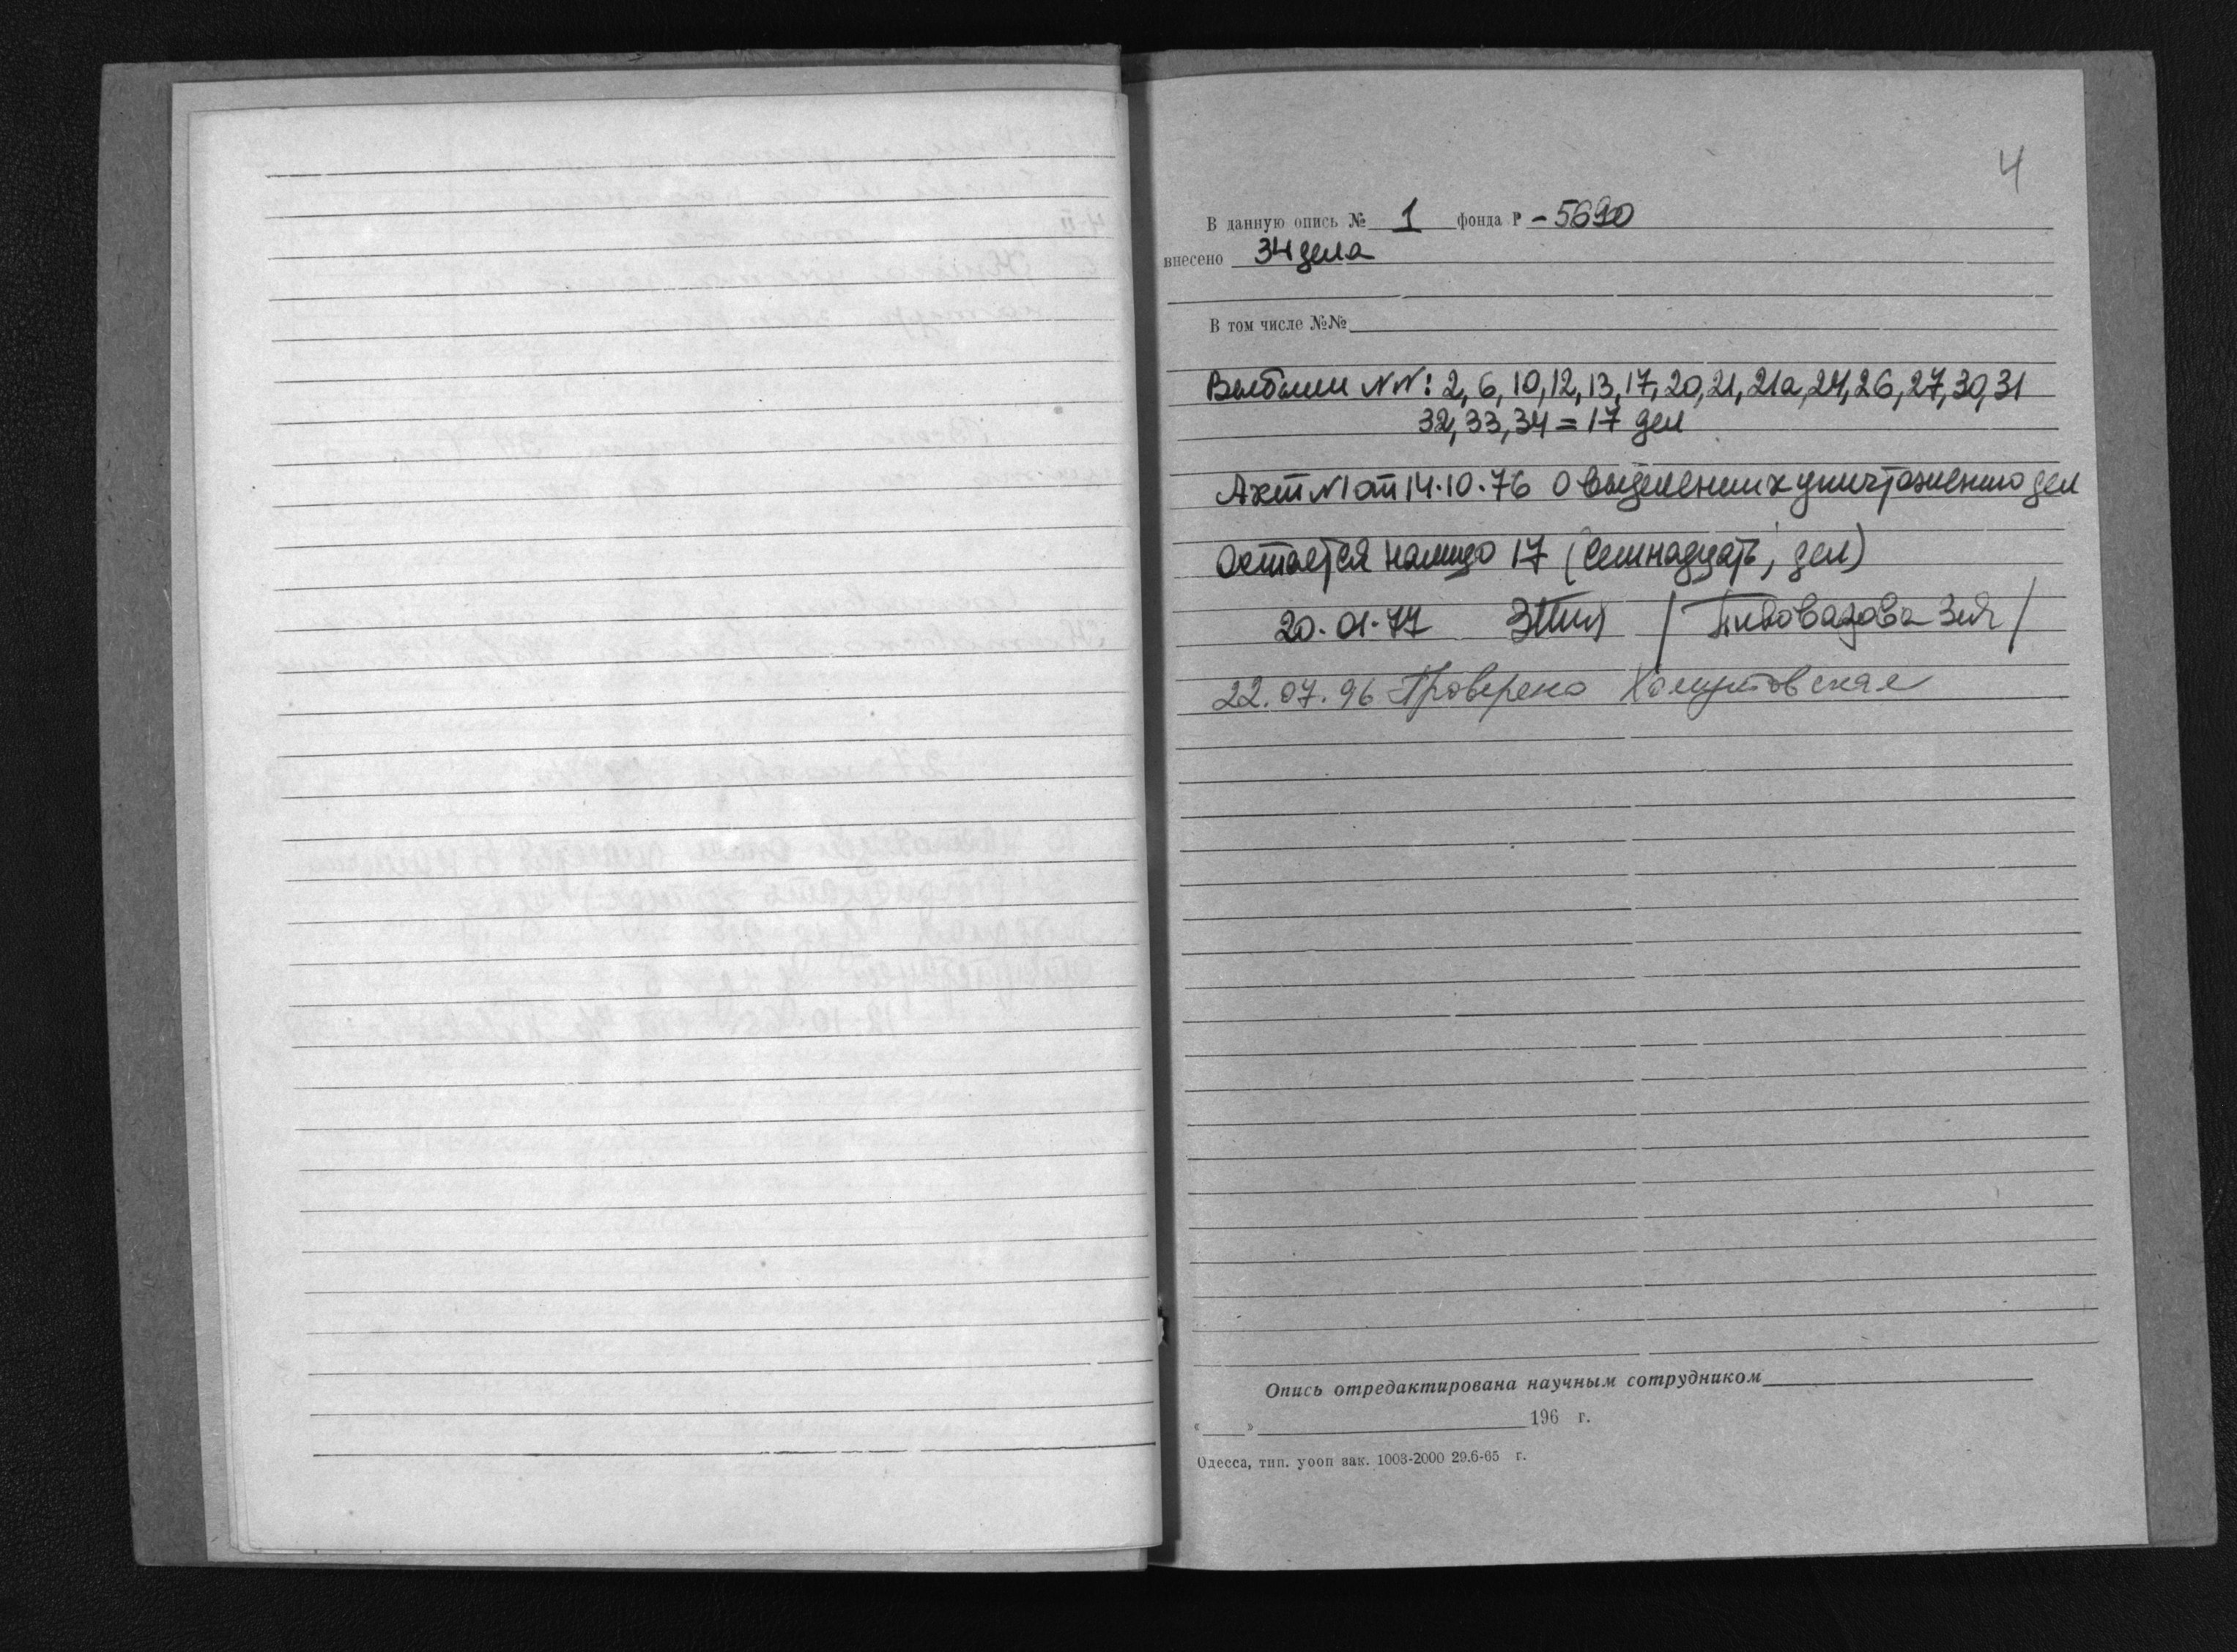 4
В данную опись № 1 фонда Р -5690
внесено 34 дела
В том числе №№
Выбыли NN: 2, 6, 10, 12, 13, 17, 20, 21, 21а, 24, 26, 27, 30, 31
32, 33, 34 = 17 дел
Акт N1 от 14.10.76 о выделении к уничтожению дел
Остается налицо 17 (семнадцать) дел)
20.01.77
22.07.96 Проверено
Опись отредактирована научным сотрудником
« » 196 г.
Одесса, тип. уооп зак. 1003-2000 29.6-65 г.